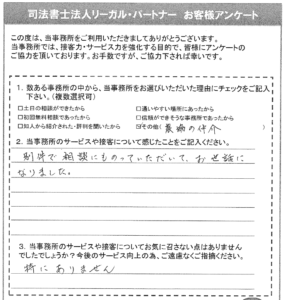 司法書士法人リーガル・パートナー お客様アンケート
この度は、当事務所をご利用いただきましてありがとうございます。
当事務所では、接客力・サービス力を強化する目的で、皆様にアンケートの
ご協力を頂いております。お手数ですが、ご協力下されば幸いです。
1. 数ある事務所の中から、当事務所をお選びいただいた理由にチェックをご記入
下さい。(複数選択可)
□土日の相談ができたから □通いやすい場所にあったから
□初回無料相談であったから □信頼ができそうな事務所であったから
□知人から紹介された・評判を聞いたから ☑その他(農協の仲介
2. 当事務所のサービスや接客について感じたことをご記入ください。
別件で相談にものっていただいて、お世話に
なりました。
3. 当事務所のサービスや接客についてお気に召さない点はありません
でしたでしょうか?今後のサービス向上の為、ご遠慮なくご指摘ください。
特にありません